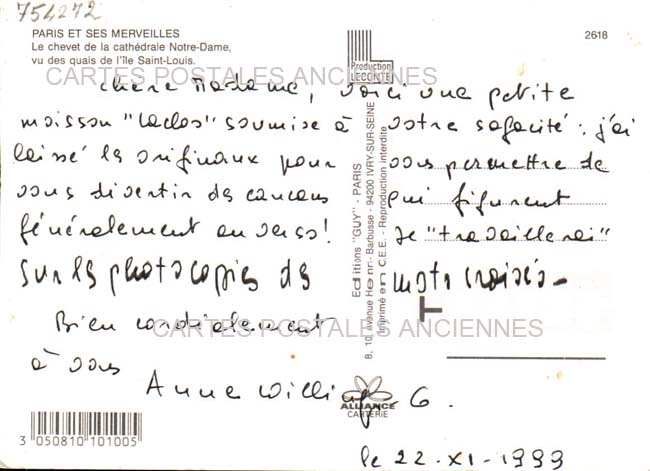 754272
PARIS ET SES MERVEILLES
Le chevet de la cathédrale Notre-Dame,
vu des quais de l'île Saint-Louis.
2618
Production
LECONTE
CARTES POSTALES ANCIENNES
Chère Madame, voici une petite
moisson "Laclos" soumise à votre sagacité : j'ai
laissé les originaux pour vous permettre de
vous divertir des cancans qui figurent
généralement au verso! Je "travaillerai"
sur les photocopies des mots croisés -
Bien cordialement
à vous
Anne G.
le 22-XI-1999
Editions "GUY" - PARIS
8, 10, Avenue Henri-Barbusse - 94200 IVRY-SUR-SEINE
Imprimé en C.E.E. - Reproduction interdite
CARTES POSTALES ANCIENNES
ALLIANCE
CARTERIE
3 050810 101005